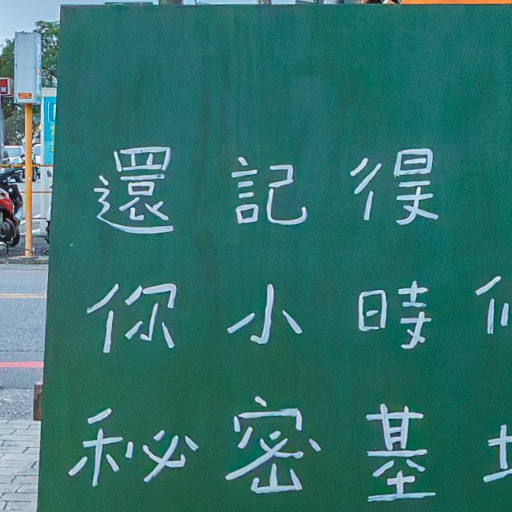 還記得
你小時
秘密基